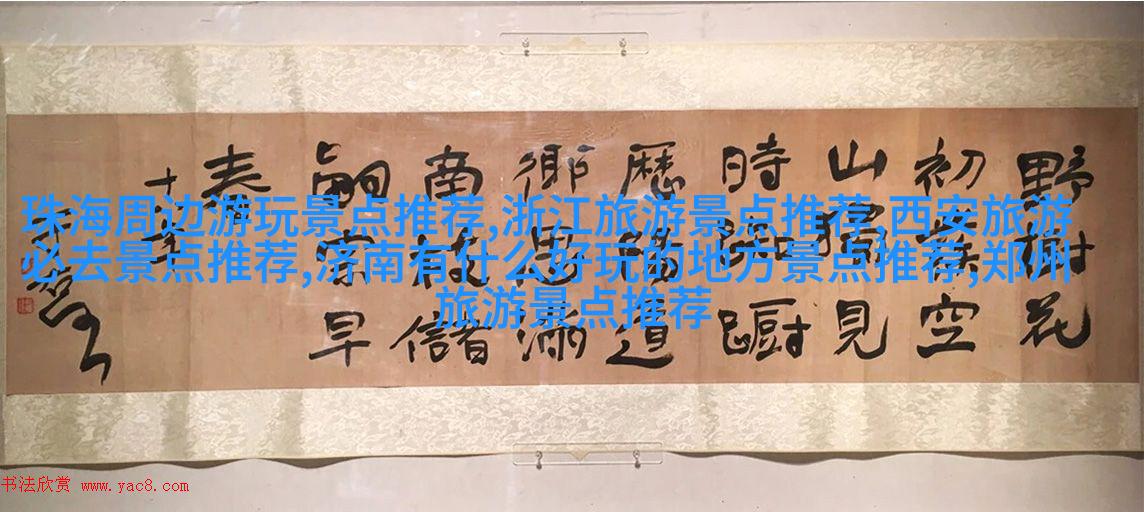 珠海周边游玩景点推荐,浙江旅游景点推荐,西安旅游
必去景点推荐,济南有什么好玩的地方景点推荐,郑州
旅游景点推荐
野樹花
初發空
山獨見
時踟躕
歷陽道
鄉思滿
南枝儲
嗣宗早
春
书法欣赏 www.yac8.com